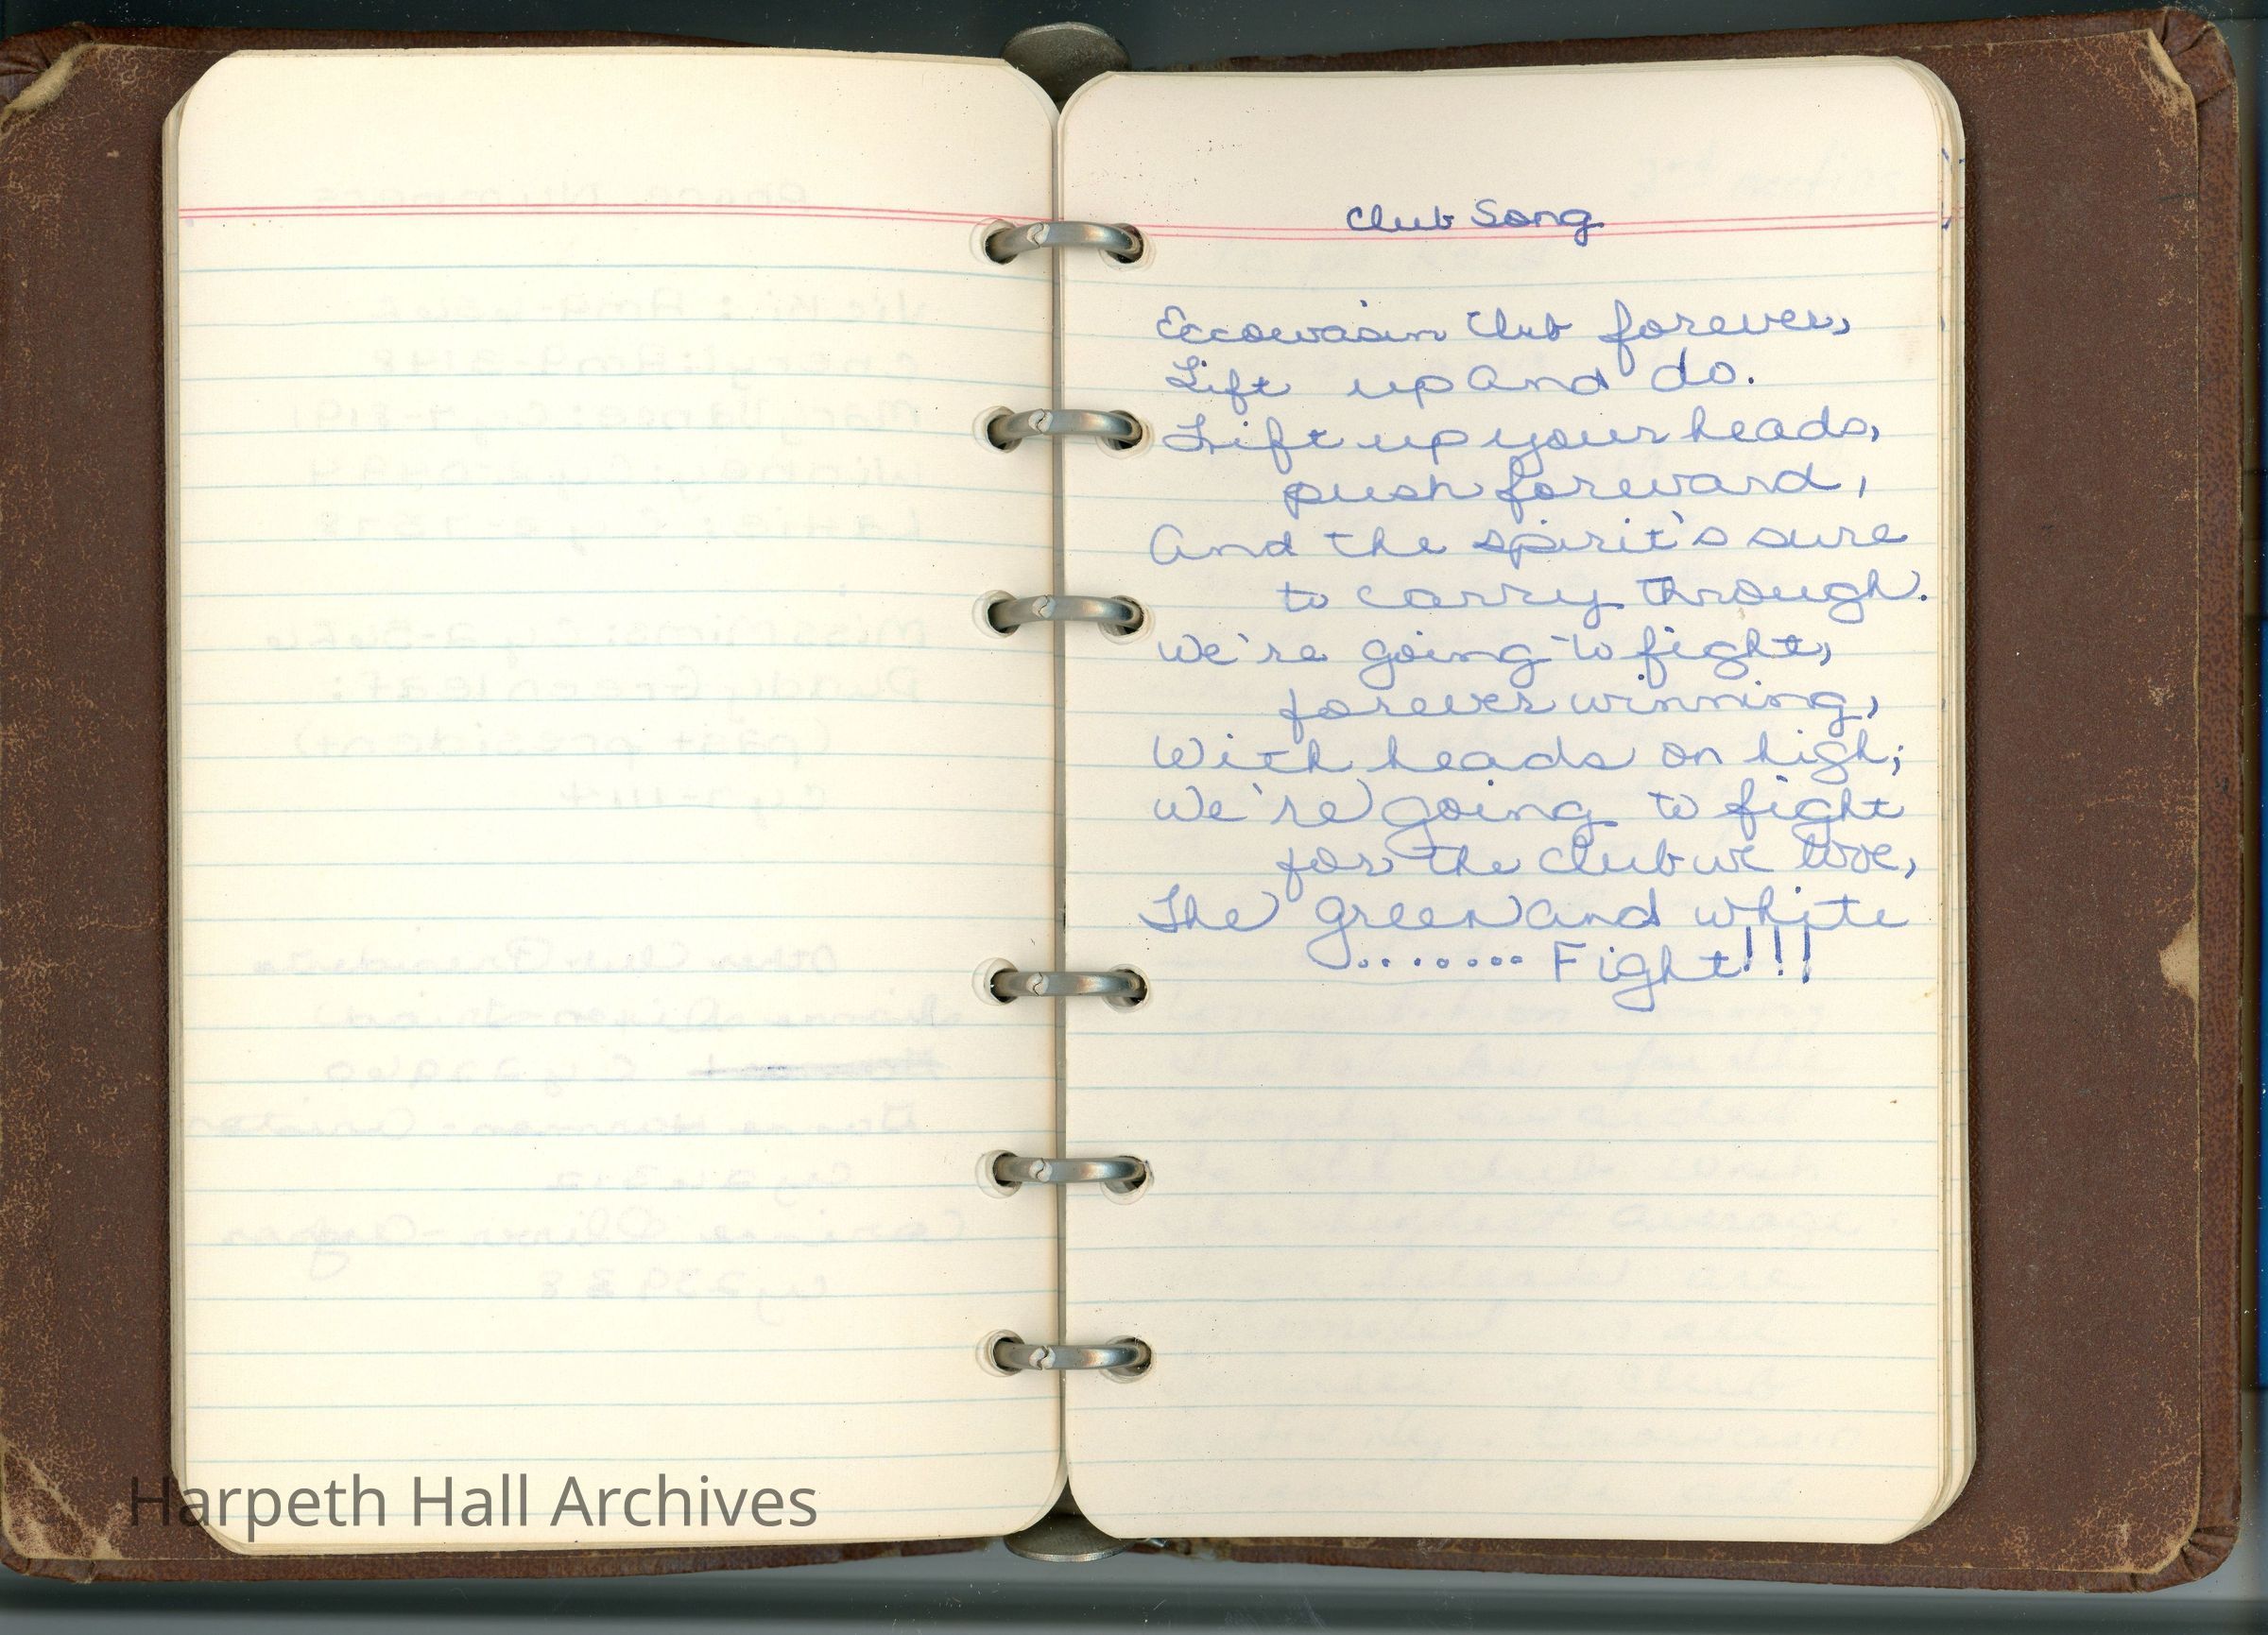 Club Song
Eccowasin Club forever,
Lift up and do.
Lift up your heads,
push forward,
And the spirit's sure
to carry through.
We're going to fight,
forever winning,
With heads on high;
We're going to fight
for the club we love,
The green and white
........ Fight!!!
Harpeth Hall Archives